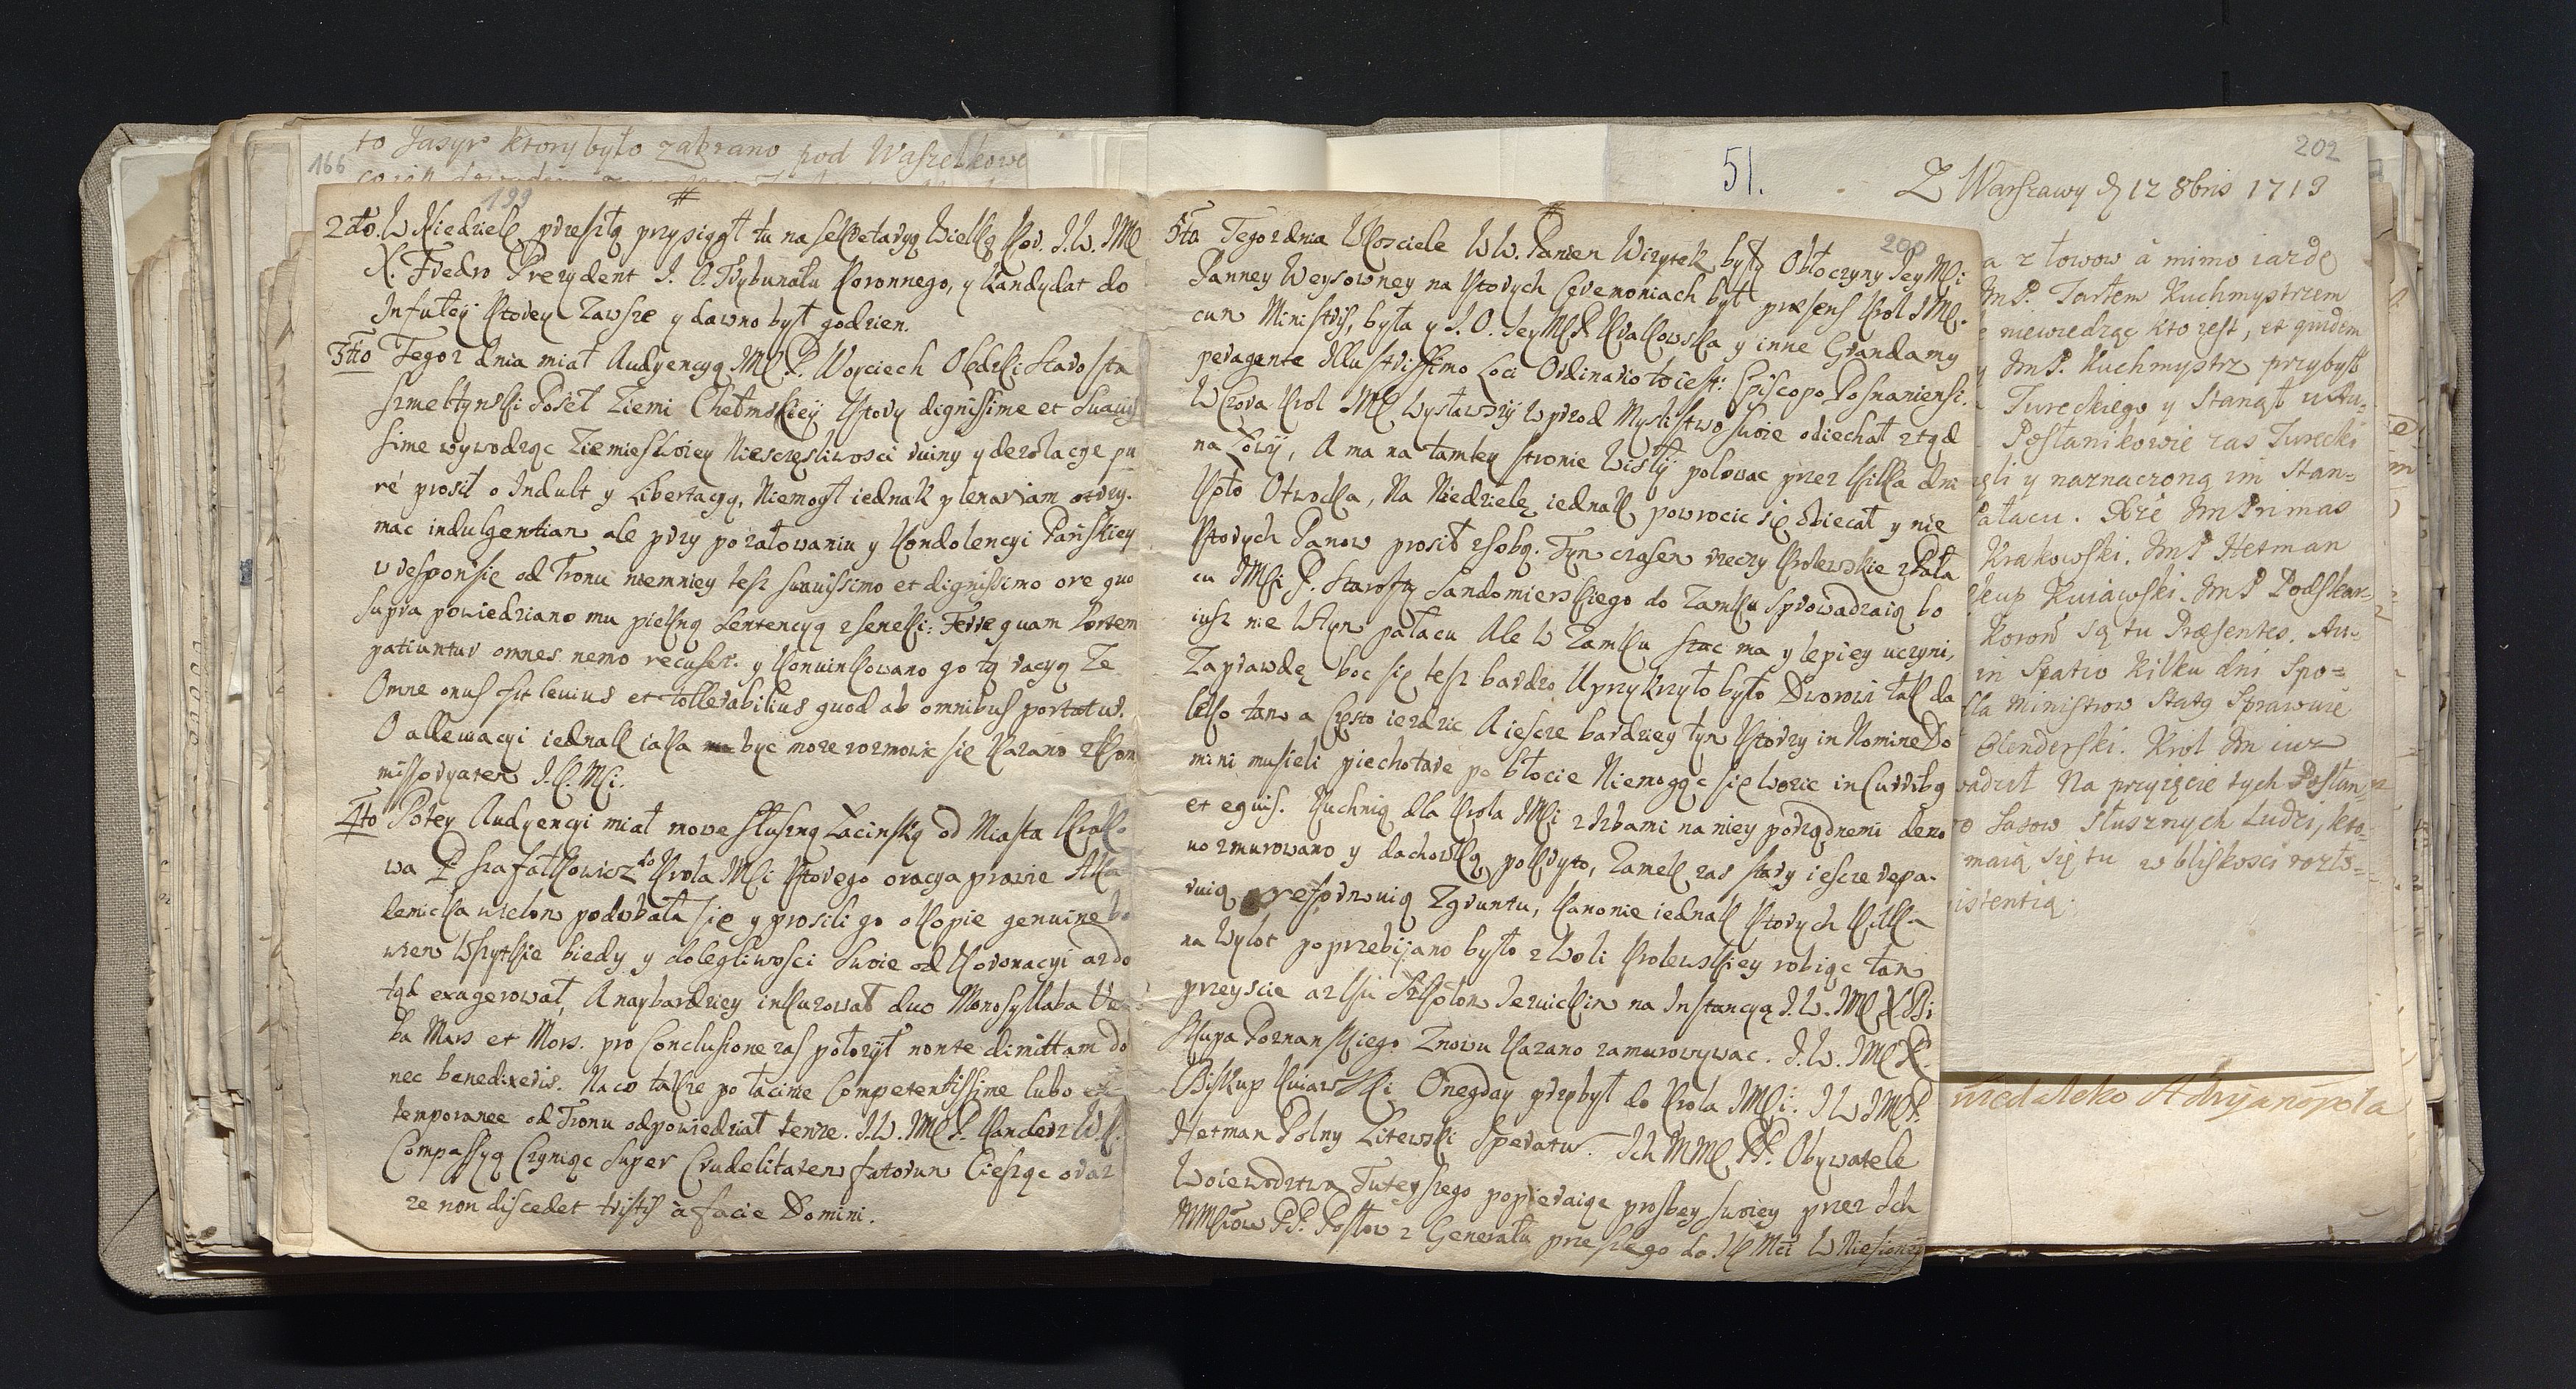 to Jasyr ktory było zabrano pod Waszelkowe
166
199
#
2do. W Niedzielę przeszłą przysiągł tu na sekretaryą Wielką Kor. J.W. JMC
X. Fredro Prezydent J. O. Trybunału Koronnego, y Kandydat do
Infuleÿ ktorey Zawsze y dawno był godzien.
3tio Tegoz dnia miał Audyencyą JMC P. Woyciech Obędzki Starosta
szmeltynski Poseł Ziemi Chełmskieÿ ktory dignissime et Suauis
sime wywodząc Ziemie swoiey Niesczęsliwosci ruiny y dezolacye pu
ré prosił o Indult y Libertacyą, Niemogł iednak plenariam otrzy.
mac indulgentiam ale przy pozałowaniu y Kondolencyi Pańskiey
w responsie od Tronu niemniey tesz suauissimo et dignissimo ore quo
supra powiedziano mu piękną Sentencyą z seneki: Ferre quam sortem
patiuntur omnes nemo recuset. y Konuinkowano go tą racyą Ze
Omne onus fit leuius et tollerabilius quod ab omnibus portatur.
O allewacyi iednak iaka byc moze rozmowic się kazano z Kom
missoryatem J.K.Mci.
4to Potey Audyencyi miał mowe słuszną Łacinską od Miasta Krako
wa P. Szafałkowicz do Krola JMci ktorego oracya prawie Aka
demicka wielom podobała się y prosili go o kopie genuine bo
wiem wszytkie biedy y dolegliwosci swoie od Koronacyi az do
tąd exagerował, A naybardziey inkuzował duo Monosyllaba Ver
ba Mars et Mors. pro Conclusione zas połozył non te dimittam do
nec benedixeris. Na co takze po łacinie Competentissime lubo ex
temporanee od Tronu odpowiedział tenze. J.W. JMC P. Kanclerz W.K.
Compassyą Czyniąc super Crudelitatem fatorum Ciesząc oraz
ze non discedet tristis à facie Domini.
#
200
5to Tegoz dnia w Kosciele WW. Panien Wizytek były Obłoczyny JeyMci
Panney Weysowney na ktorych Ceremoniach był praesens Krol JMC.
cum Ministris, była y J. O. JeyMC P. Krakowska y inne Grandamy
peragente Illustrissimo Loci Ordinario to iest: Episcopo Posnaniensi.
Wczora Krol JMC wysławszÿ wprzod Myslistwo swoie odiechał ztąd
na Łowÿ, A ma na tamtey stronie Wisłÿ polowac przez kilka dni
koło Otwocka, Na Niedzielę iednak powrocic się obiecał y nie
ktorych Panow prosił z sobą. Tym czasem rzeczy Krolewskie z Pała
cu JMci P. Starosty Sandomierskiego do Zamku sprowadzaią bo
iusz nie w tym pałacu Ale w Zamku stac ma y lepiey uczyni,
Zaprawdę boc się tesz bardzo Uprzykrzyło było Dworowi tak da
leko tam a Często iezdzic A iescze bardziey tym ktorzy in Nomine Do
mini musieli piechotare po błocie Niemogąc się wozic in Curribq
et equis. Kuchnią dla Krola JMci z Izbami na niey porządnemi deno
uo zmurowano y dachowką pokryto, Zamek zas stary iescze repa-
ruią reformuią Zgruntu, kamonie iednak ktorych kilka
na wylot poprzebijano było z Woli Krolewskiey robiąc tam
przeyscie az ku Szkołom Jezuickim na Instancyą J.W. JMC X Bi
skupa Poznanskiego Znowu kazano zamurowywac. J.W. JMC X.
Biskup Kuiawski Onegday przybył do Krola JMci. J W JMC P.
Hetman Polny Litewski speratur. Ich MMC PP. Obywatele
Woiewodztwa Tuteyszego popieraiąc prosbey swoiey przez Ich
MMciow PP. Posłow z Generału przeszłego do J K Mci Wniesioney
51.
202
Z Warszawy d 12 8bris 1713
a z łowow à mimo iazdę
ImP. Tarłem Kuchmystrzem
niewiedząc kto iest, et quidem
ImP. Kuchmystrz przybył
Tureckiego y Stanął w Au-
Posłanikowie zas Turecki
ęli y naznaczoną im Stan-
Pałacu. Xże Im Primas
Krakowski. ImP Hetman
skup Kuiawski. ImP Podskar-
Koroñ są tu Praesentes. Au-
in Spatio Kilku dni Spo-
la Ministrow Statą Sprawuie
Olenderski. Krol Im iuz
wadził Na przyięcie tych Posłan-
o Sasow Słusznych Ludzi, kto-
maią się tu w bliskosci rozło-
istentią.
niedaleko Adryanopola